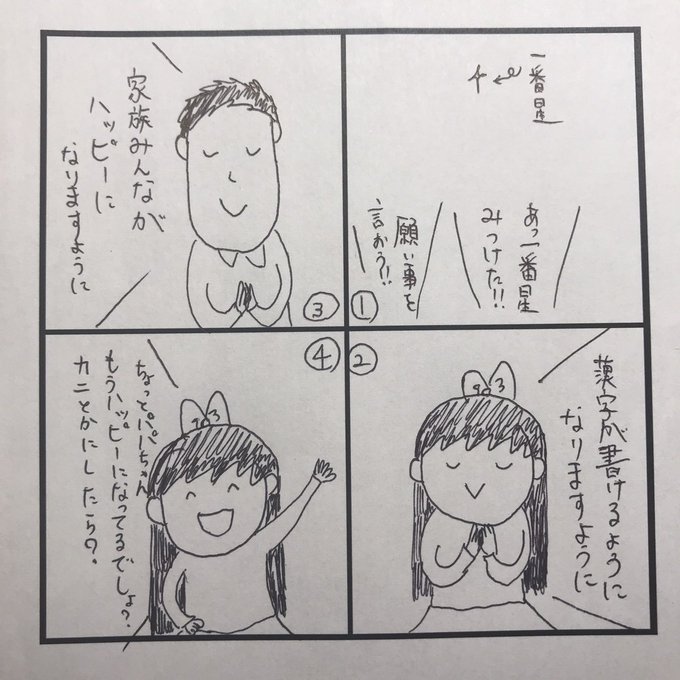 ①
一番星
あっ一番星
みつけた!!
願い事を
言おう!!
②
漢字が書けるように
なりますように
③
家族みんなが
ハッピーに
なりますように
④
ちょっとパパちゃん
もうハッピーになってるでしょ?
カニとかにしたら?